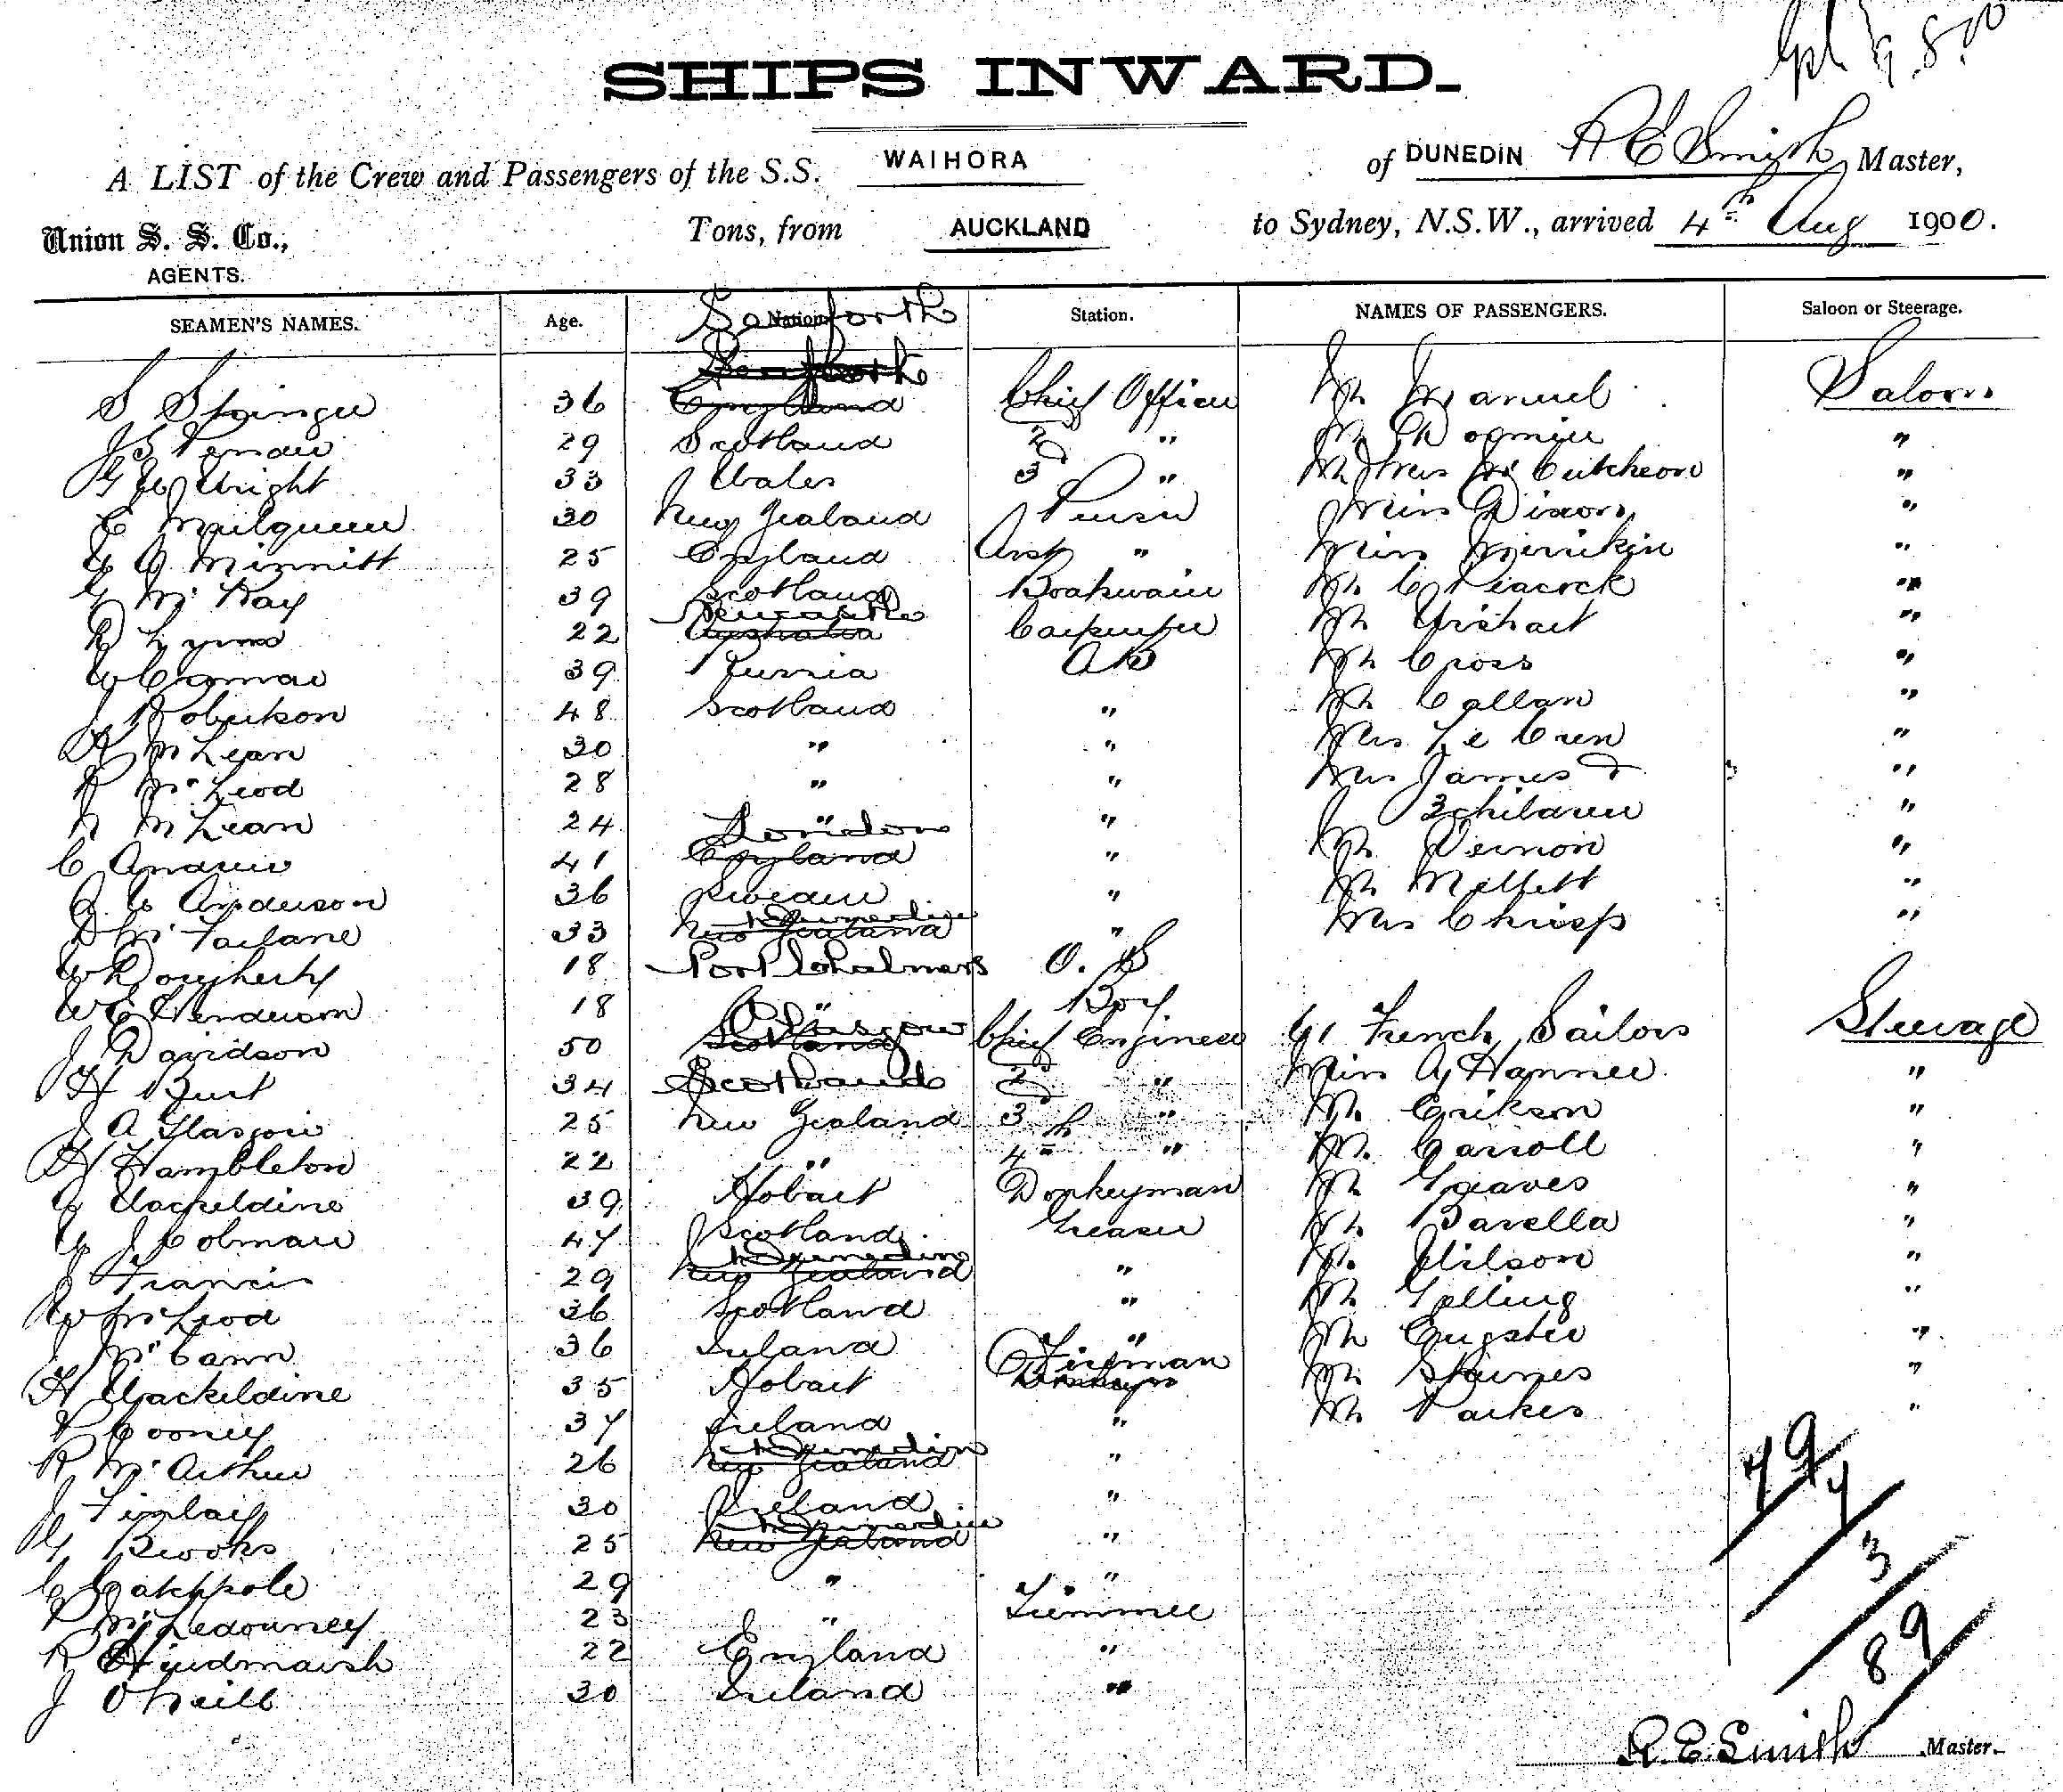 SHIPS INWARD.
A LIST of the Crew and Passengers of the S.S. WAIHORA of DUNEDIN R E Smith Master,
Union S. S. Co., AGENTS. Tons, from AUCKLAND to Sydney, N.S.W., arrived 4th Aug 1900.
SEAMEN'S NAMES. Age. Nation Station. NAMES OF PASSENGERS. Saloon or Steerage.
Seaforth
S Stringer 36 England Chief Officer Mr Manuel Saloon
J S Pender 29 Scotland 2 " Mr "
G W Wright 33 Wales 3 " Mr & Mrs McCutcheon "
30 New Zealand Purser Miss Dixon "
Minnitt 25 England Asst " Miss "
G McKay 39 Scotland Boatswain Mr C Peacock "
R Lyund 22 Newcastle Australia Carpenter Mr Urshart "
39 Russia AB Mr Cross "
J Robertson 48 Scotland " Mr Callan "
McLean 30 " " Mrs Le Cren "
McLeod 28 " " Mrs James & "
N McLean 24 " " 3 children "
C Andrew 41 London England " Mr Vernon "
Anderson 36 Sweden " Mr Mellett "
D McFarlane 33 Dunedin New Zealand " Mrs Chrisp "
W Dougherty 18 Port Chalmers O. S
W E Henderson 18 " Boy
J Davidson 50 Glasgow Scotland Chief Engineer 41 French Sailors Steerage
H Burt 34 Scotland 2 " Miss A Hannee "
J A Glasgow 25 New Zealand 3 " Mr Erikson "
H Hambleton 22 " 4th " Mr Carroll "
G Wackeldine 39 Hobart Donkeyman Mr Greaves "
J Colman 47 Scotland Greaser Mr Barella "
J Francis 29 Dunedin New Zealand " Mr Wilson "
W McLeod 36 Scotland " Mr Gelling "
J McCann 36 Ireland " Mr Eugster "
H Wackeldine 35 Hobart Fireman Mr Staines "
P Cooney 37 Ireland " Mr Parkes "
R McArthur 26 Dunedin New Zealand "
J Finlay 30 Ireland "
G Brooks 25 Dunedin New Zealand "
C Catchpole 29 " "
23 " Trimmer
R Hindmarsh 22 England "
J O'Neill 30 Ireland "
79
7
3
89
R. E. Smith Master.